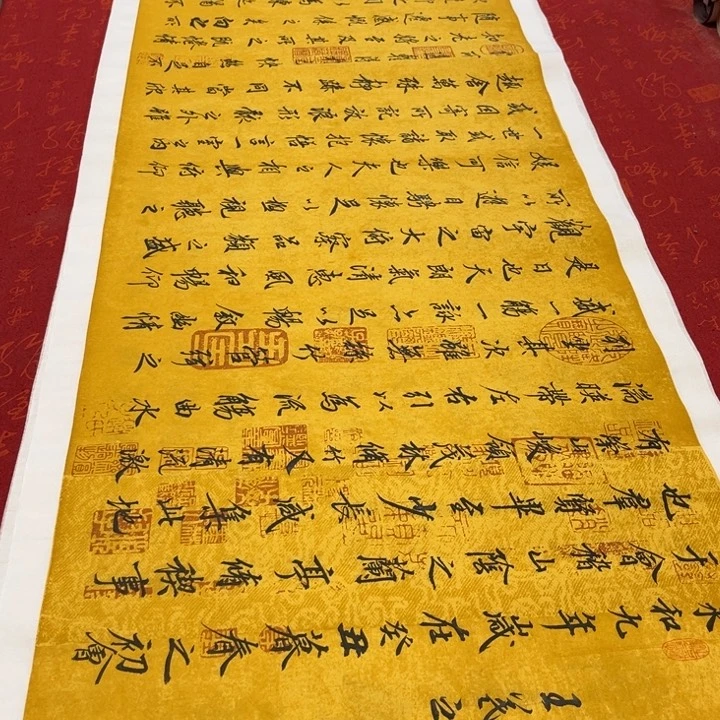 王羲之
永和九年歲在癸丑暮春之初會
于會稽山陰之蘭亭脩稧事
也群賢畢至少長咸集此地
有崇山峻領茂林脩竹又有清流激
湍暎帶左右引以為流觴曲水
列坐其次雖無絲竹管弦之
盛一觴一詠亦足以暢敘幽情
是日也天朗氣清惠風和暢仰
觀宇宙之大俯察品類之盛
所以遊目騁懷足以極視聽之
娛信可樂也夫人之相與俯仰
一世或取諸懷抱悟言一室之內
或因寄所託放浪形骸之外雖
趣舍萬殊靜躁不同當其欣
快然自足不
知老之將至及其所之既惓情
隨事遷感慨係之矣向之所